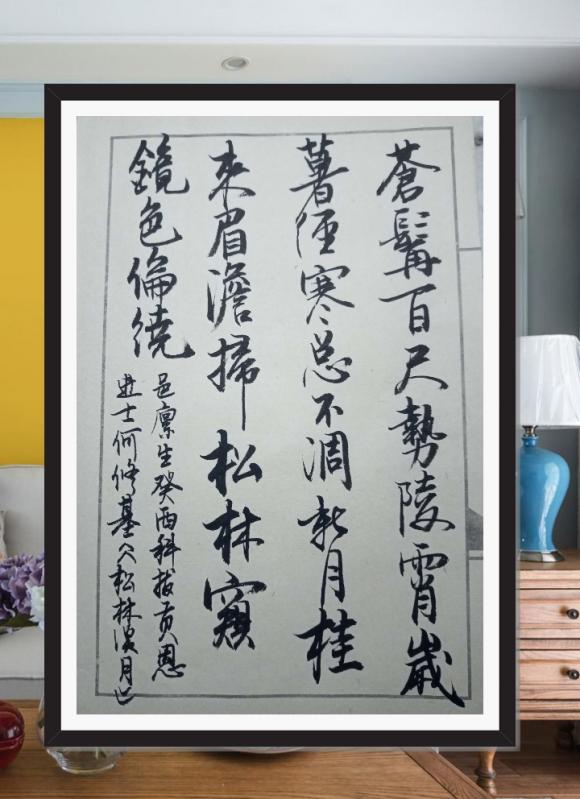 蒼髯百尺勢陵霄歲
暮經寒总不凋新月桂
來眉澹掃松林窺
鏡色倫繞
邑廩生癸酉科拔貢恩
進士何修基公松林月